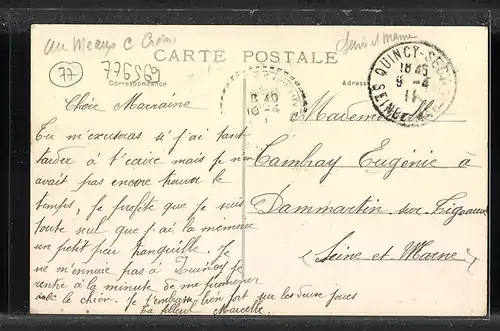 au Meaux C Crécy
Seine et Marne
CARTE POSTALE
77
776569
Correspondance
Adresse
QUINCY-SEGY
18 45
9 -4
11
SEINE-ET-M
8 40
10 -4
Chère Marraine
Tu m'excuseras si j'ai tant
tarder à t'écrire mais je n'en
avait pas encore trouver le
temps, je profite que je suis
toute seul que j'ai la mémoire
un petit peu tranquille. Je
ne m'ennuie pas à Quincy je
rentre à la minute de me promener
avec le chien. Je t'embrasse bien fort sur les deux joues
Ta filleul Marcelle.
Mademoiselle
Cambay Eugénie à
Dammartin sur Tigeaux
Seine et Marne